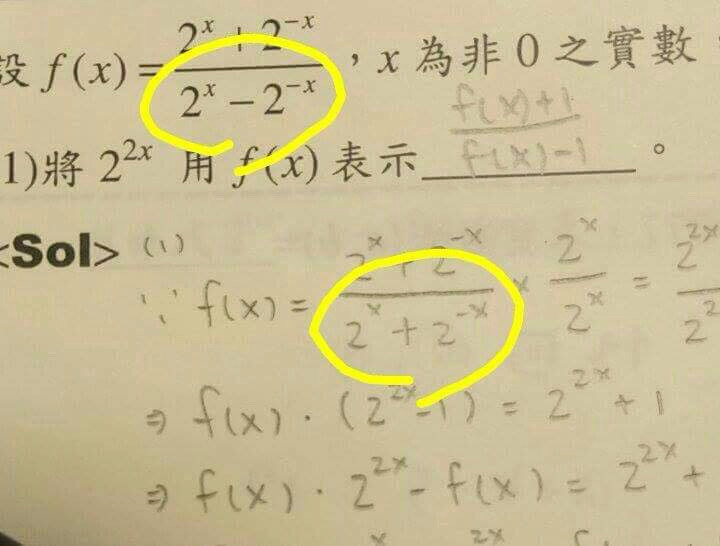 設 f(x) = (2^x + 2^-x) / (2^x − 2^-x) , x 為非 0 之實數
1)將 2^2x 用 f(x) 表示 (f(x)+1) / (f(x)-1) 。
<Sol> (1)
∵ f(x) = (2^x + 2^-x) / (2^x + 2^-x) × 2^x / 2^x = 2^2x
⇒ f(x) · (2^2x - 1) = 2^2x + 1
⇒ f(x) · 2^2x - f(x) = 2^2x +